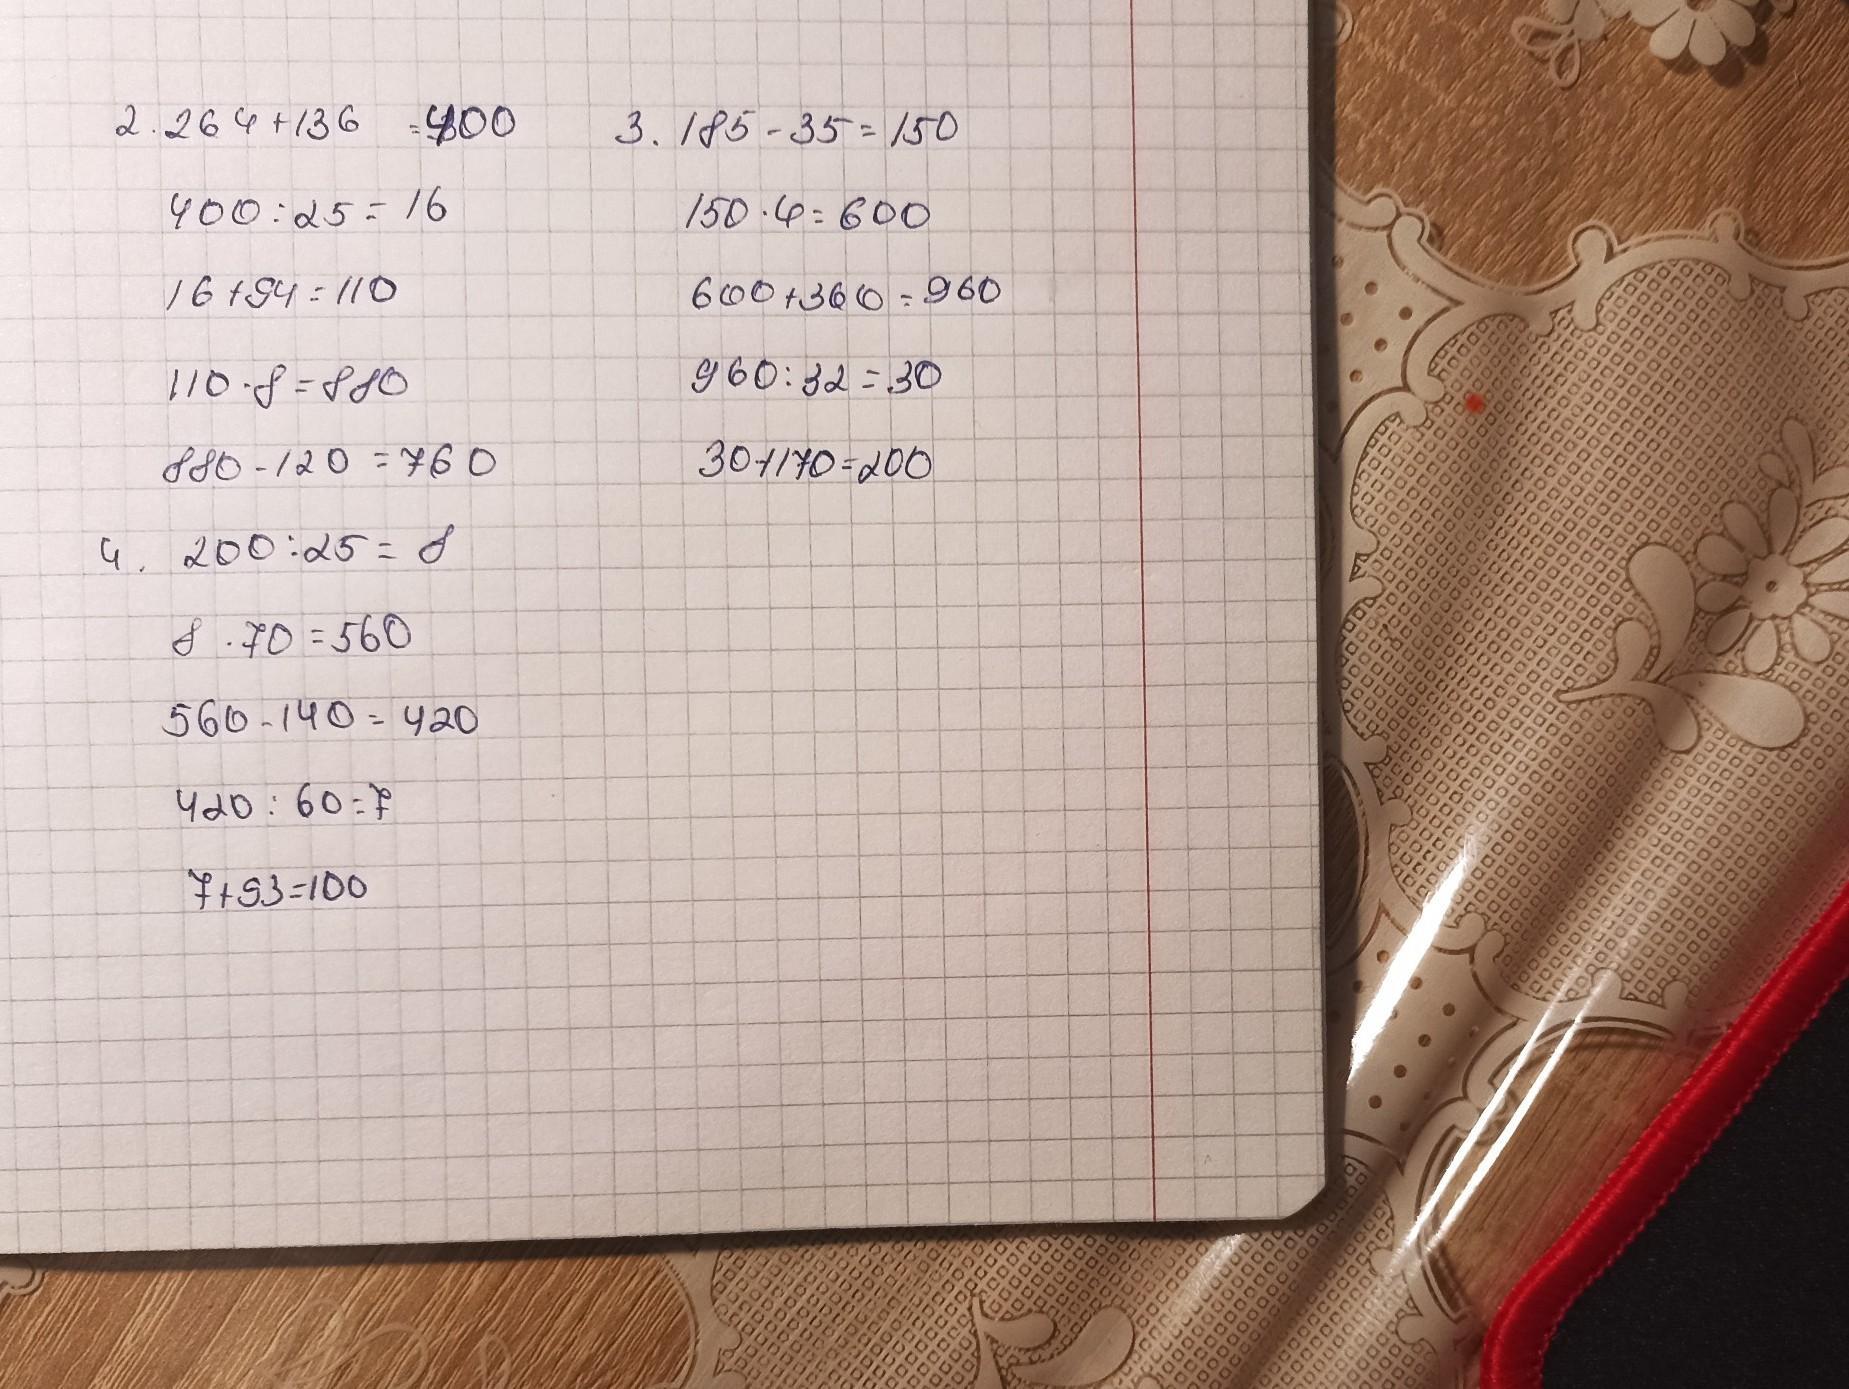 2. 264+136 =400
400:25=16
16+94=110
110·8=880
880-120=760
3. 185-35=150
150·4=600
600+360=960
960:32=30
30+170=200
4. 200:25=8
8·70=560
560-140=420
420:60=7
7+93=100